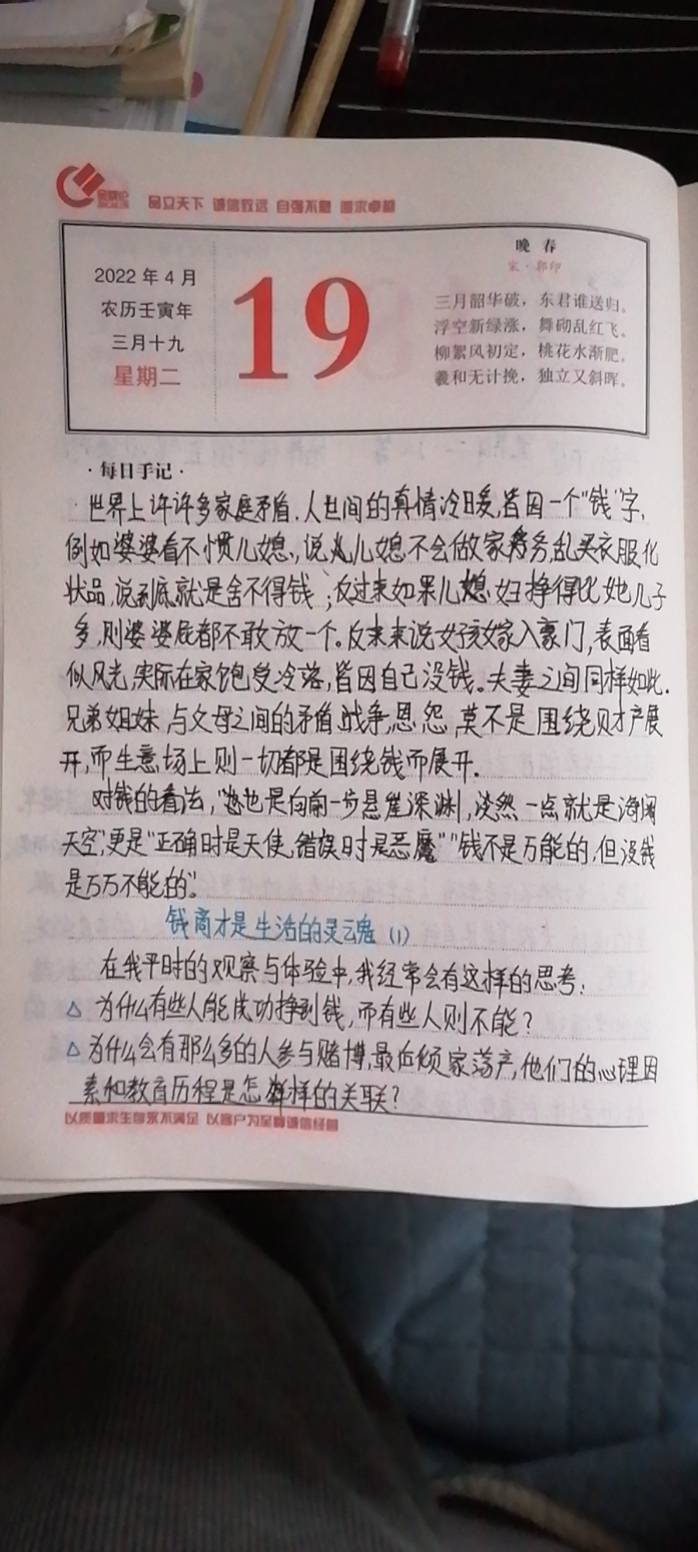 品立天下 诚信致远 自强不息 追求卓越
2022年4月
农历壬寅年
三月十九
星期二
19
晚春
宋·郭印
三月韶华破，东君谁送归。
浮空新绿涨，舞砌乱红飞。
柳絮风初定，桃花水渐肥。
羲和无计挽，独立又斜晖。
·每日手记·
世界上许许多多家庭矛盾，人世间的真情冷暖，皆因一个"钱"字，
例如婆婆看不惯儿媳，说儿媳不会做家务，乱买衣服化
妆品，说到底就是舍不得钱；反过来如果儿媳妇挣得比她儿子
多，则婆婆屁都不敢放一个。反过来说女孩嫁入豪门，表面看
似风光，实际在家饱受冷落，皆因自己没钱。夫妻之间同样如此.
兄弟姐妹，与父母之间的矛盾，战争，恩怨，莫不是围绕财产展
开，而生意场上则一切都是围绕钱而展开.
对钱的看法，"也是向前一步悬崖深渊，淡然一点就是海阔
天空"，更是"正确时是天使，错误时是恶魔""钱不是万能的，但没钱
是万万不能的".
钱商才是生活的灵魂 (1)
在我平时的观察与体验中，我经常会有这样的思考：
△ 为什么有些人能成功挣到钱，而有些人则不能？
△ 为什么会有那么多的人参与赌博，最后倾家荡产，他们的心理因
素和教育历程是怎样的关联？
以质量求生存永不满足 以客户为至尊诚信经营